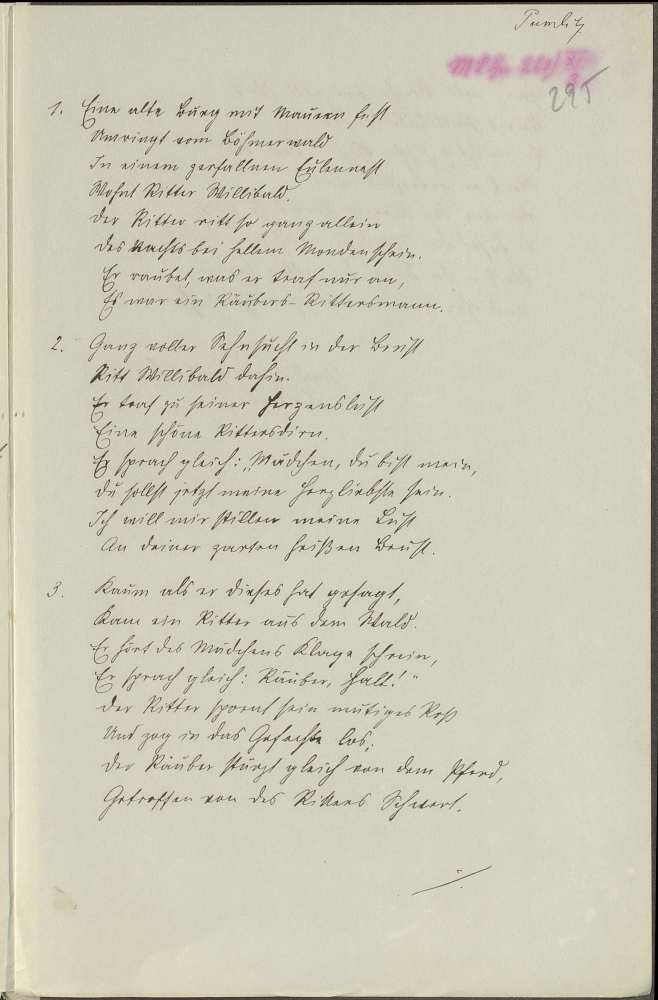 295
1. Eine alte Burg mit Mauern fest
Umringt vom Böhmerwald
In einem zerfallnen Eulennest
Wohnt Ritter Willibald.
Der Ritter ritt so ganz allein
Des Nachts bei hellem Mondenschein.
Er raubet, was er traf nur an,
Es war ein Räubers-Rittersmann.
2. Ganz voller Sehnsucht in der Brust
Ritt Willibald dahin.
Er traf zu seiner Herzenslust
Eine schöne Rittersdirn.
Er sprach gleich: „Mädchen, du bist mein,
Du sollst jetzt meine Herzliebste sein.
Ich will mir stillen meine Lust
An deiner zarten heißen Brust.
3. Kaum als er dieses hat gesagt,
Kam ein Ritter aus dem Wald.
Er hört des Mädchens Klage schrein,
Er sprach gleich: Räuber, Halt!"
Der Ritter spornt sein mutiges Roß
Und zog in das Gefechte los,
Der Räuber stürzt gleich von dem Pferd,
Getroffen von des Ritters Schwert.